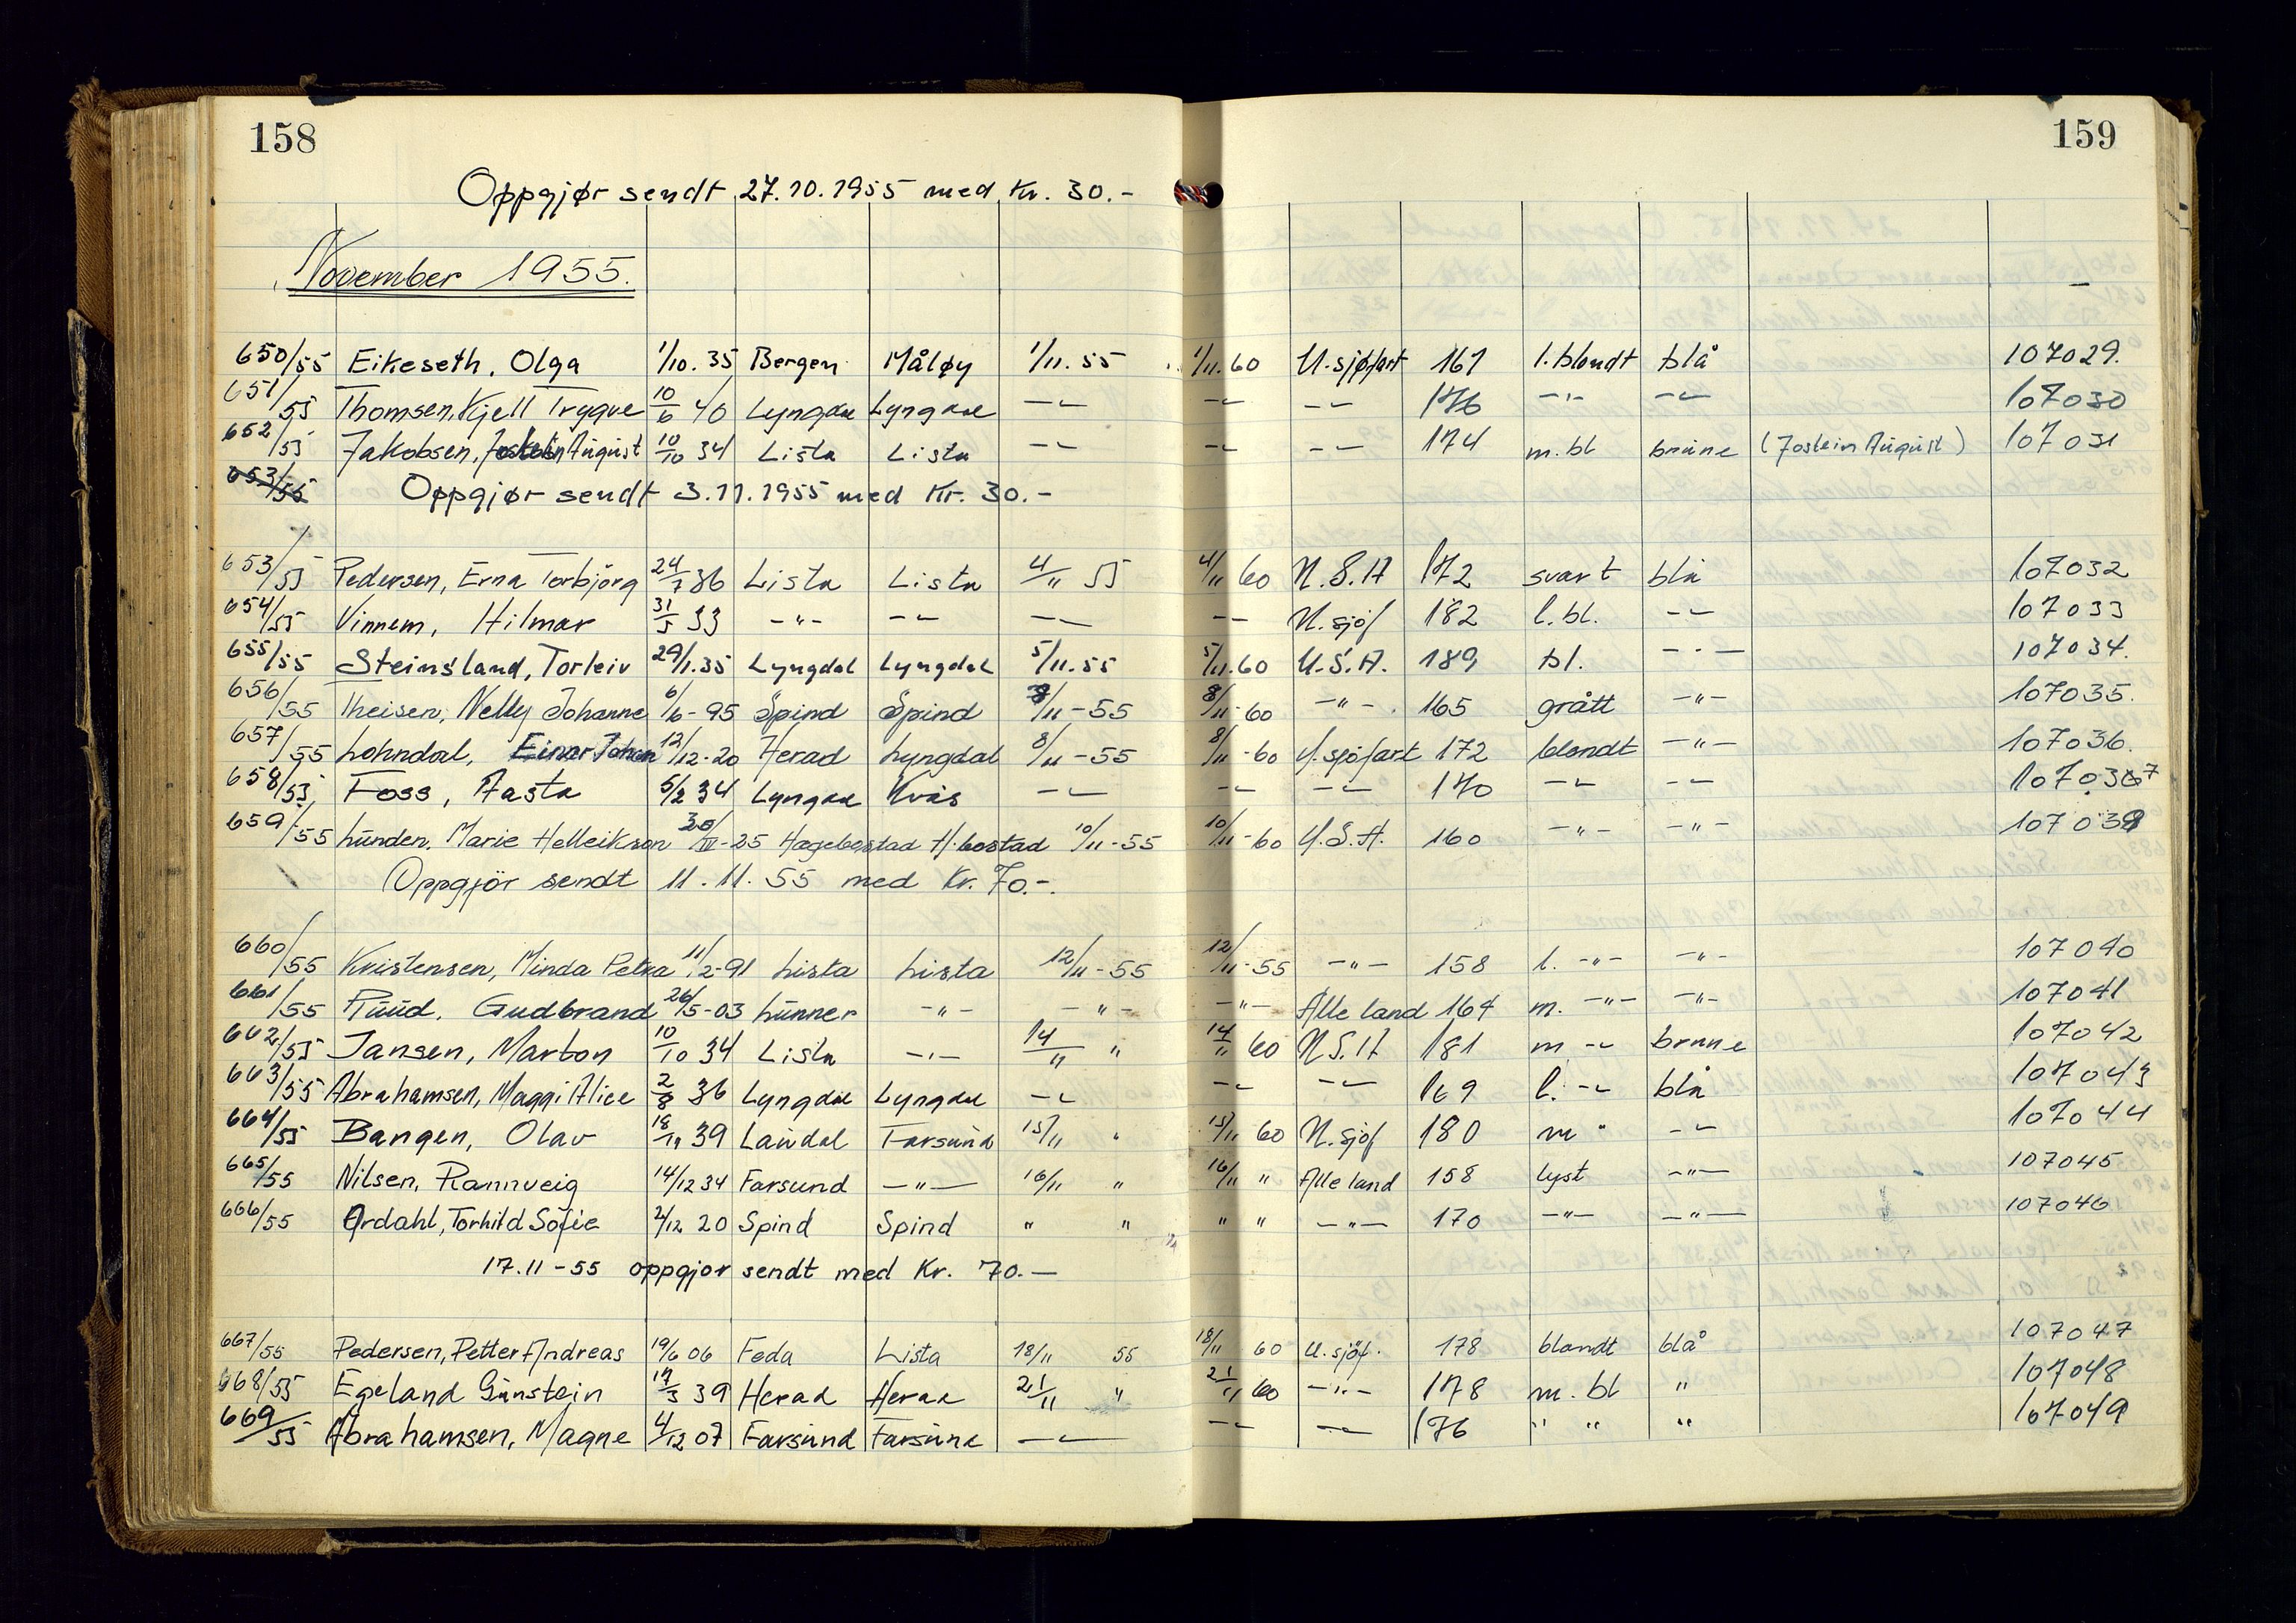 158
159
Oppgjør sendt 27.10.1955 med Kr. 30.-
November 1955.
650/55 Eikeseth, Olga 1/10. 35 Bergen Måløy 1/11. 55 1/11. 60 U. sjøfart 161 l. blondt blå 107029.
651/55 Thomsen, Kjell Trygve 10/6 40 Lyngdal Lyngdal -"- -"- -"- 176 -"- -"- 107030
652/55 Jakobsen, August 10/10 34 Lista Lista -"- -"- -"- 174 m. bl brune (Jostein August) 107031
653/55 Oppgjør sendt 3.11.1955 med Kr. 30.-
653/55 Pedersen, Erna Torbjörg 24/7 36 Lista Lista 4/11 55 4/11 60 U.S.A 172 svart blå 107032
654/55 Vinnem, Hilmar 31/5 33 -"- -"- -"- -"- U. sjöf 182 l. bl. -"- 107033
655/55 Steinsland, Torleiv 29/1. 35 Lyngdal Lyngdal 5/11. 55 5/11. 60 U.S.A. 189 bl. -"- 107034.
656/55 Theisen, Nelly Johanne 6/6 - 95 Spind Spind 8/11 - 55 8/11 - 60 -"- 165 grått -"- 107035.
657/55 Lohndal, Einar Johan 12/12 - 20 Herad Lyngdal 8/11 - 55 8/11 - 60 U. sjöfart 172 blondt -"- 107036.
658/55 Foss, Aasta 5/2 34 Lyngdal Kvås -"- -"- -"- 170 -"- -"- 107037
659/55 Lunden, Marie Helleikson - 25 Hægebostad H.bostad 10/11 - 55 10/11 - 60 U.S.A. 160 -"- -"- 107039
Oppgjör sendt 11.11.55 med Kr. 70.-.
660/55 Kristensen, Minda Petra 11/2 - 91 Lista Lista 12/11 - 55 12/11 - 55 -"- 158 l. -"- -"- 107040
661/55 Ruud, Gudbrand 26/5 - 03 Lunner -"- -"- -"- Alle land 164 m. -"- -"- 107041
662/55 Jansen, Marton 10/10 34 Lista -"- 14/11 " 14/11 60 U.S.A 181 m -"- brune 107042
663/55 Abrahamsen, Maggi Alice 2/8 36 Lyngdal Lyngdal -"- -"- -"- 169 l. -"- blå 107043
664/55 Bangen, Olav 39 Laudal Farsund 15/11 " 15/11 60 U. sjöf 180 m " -"- 107044
665/55 Nilsen, Rannveig 14/12 34 Farsund -"- 16/11 " 16/11 " Alle land 158 lyst -"- 107045
666/55 Ordahl, Torhild Sofie 2/12 20 Spind Spind " " " " -"- 170 -"- -"- 107046
17.11-55 oppgjør sendt med Kr. 70.-
667/55 Pedersen, Petter Andreas 19/6 06 Feda Lista 18/11 55 18/11 60 U. sjöf. 178 blondt blå 107047
668/55 Egeland Gunstein 17/3 39 Herad Herad 21/11 " 21/11 60 -"- 178 m. bl " 107048
669/55 Abrahamsen, Magne 4/12 07 Farsund Farsund -"- -"- -"- 176 " " " 107049